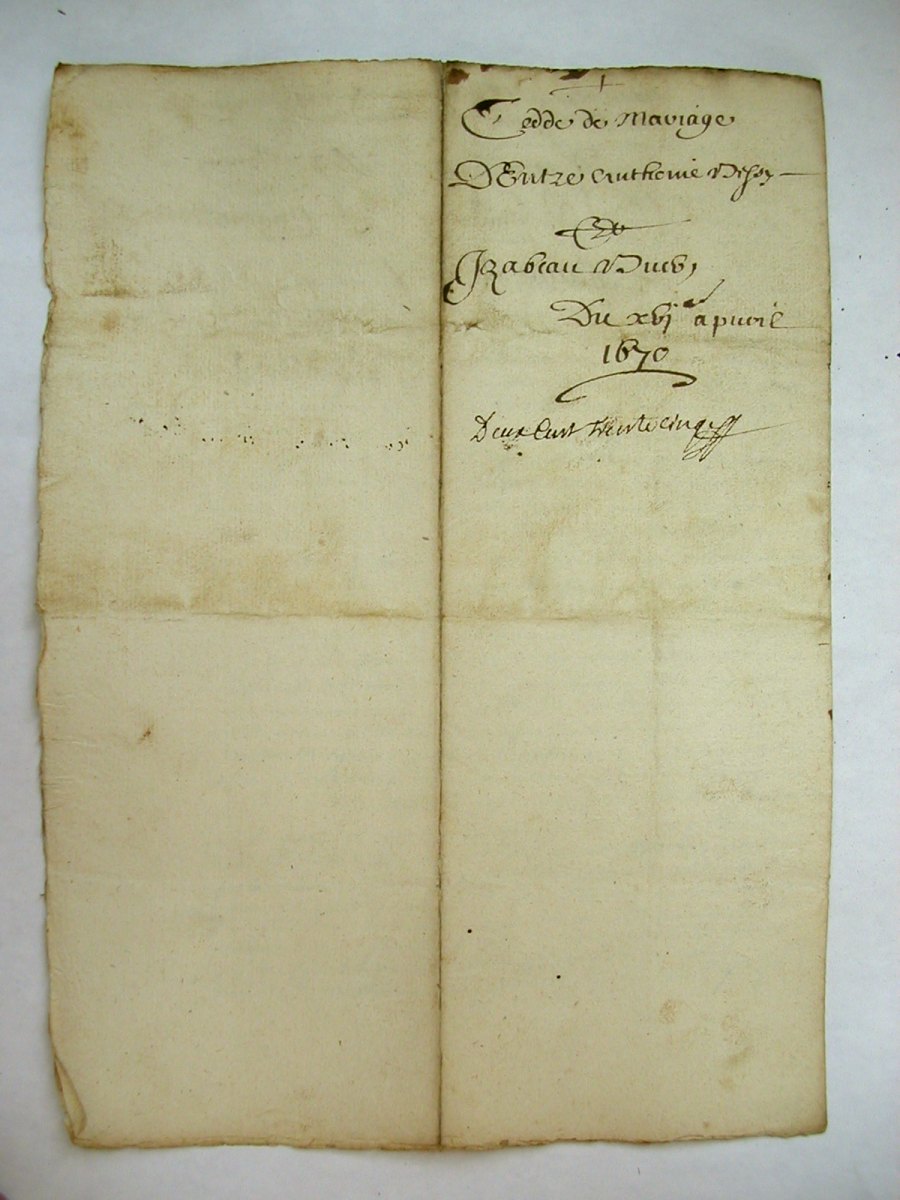 Cedde de Mariage
D'Entre Anthonie
Et
Izabeau
Du xvj^e apvril
1670
Deux Cent trente cinq